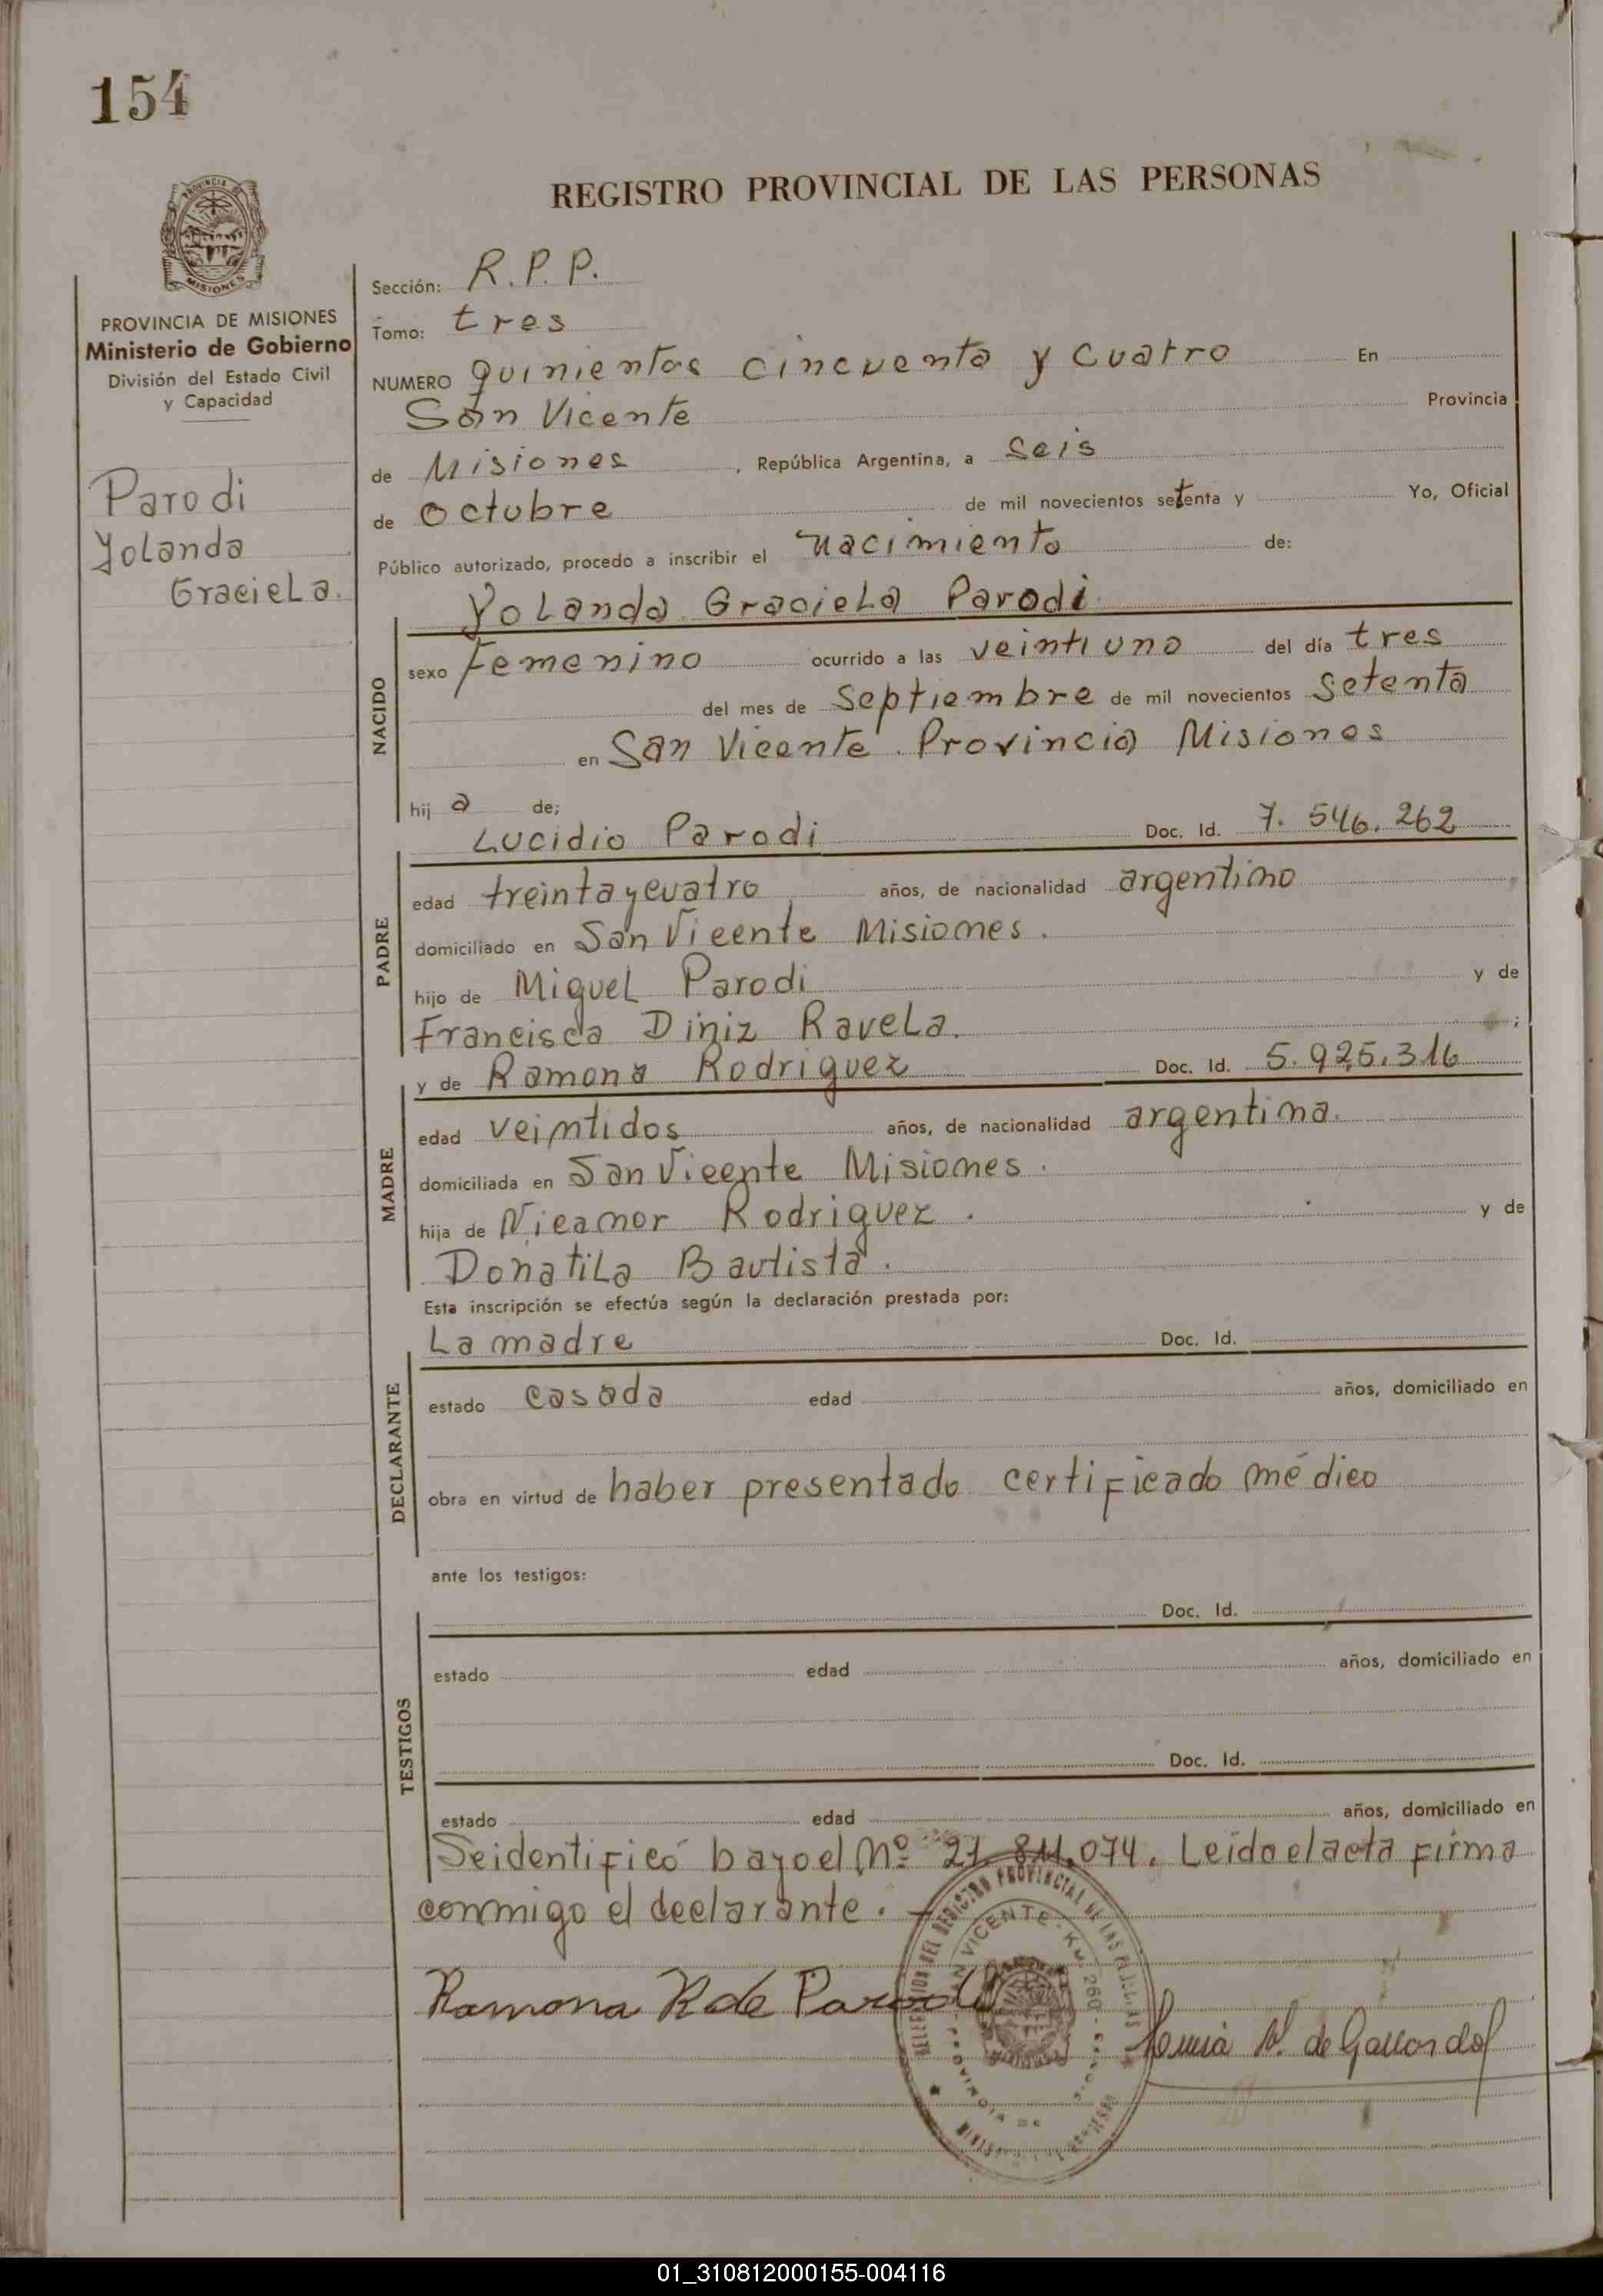 154
REGISTRO PROVINCIAL DE LAS PERSONAS
PROVINCIA DE
MISIONES
PROVINCIA DE MISIONES
Ministerio de Gobierno
División del Estado Civil
y Capacidad
Parodi
Yolanda
Graciela.
Sección: R.P.P.
Tomo: tres
NUMERO quinientos cincuenta y cuatro En
San Vicente Provincia
de Misiones, República Argentina, a seis
de octubre de mil novecientos setenta y Yo, Oficial
Público autorizado, procedo a inscribir el nacimiento de:
Yolanda Graciela Parodi
NACIDO
sexo Femenino ocurrido a las veintiuno del día tres
del mes de septiembre de mil novecientos setenta
en San Vicente Provincia Misiones
hij a de;
Lucidio Parodi Doc. Id. 7.546.262
PADRE
edad treinta y cuatro años, de nacionalidad argentino
domiciliado en San Vicente Misiones.
hijo de Miguel Parodi y de
Francisca Diniz Ravela. ;
y de Ramona Rodriguez Doc. Id. 5.925.316
MADRE
edad veintidos años, de nacionalidad argentina.
domiciliada en San Vicente Misiones.
hija de Nicanor Rodriguez. y de
Donatila Bautista.
Esta inscripción se efectúa según la declaración prestada por:
La madre Doc. Id.
DECLARANTE
estado casada edad años, domiciliado en
obra en virtud de haber presentado certificado médico
ante los testigos:
Doc. Id.
TESTIGOS
estado edad años, domiciliado en
Doc. Id.
estado edad años, domiciliado en
Se identificó bayo el Nº 21.811.074. Leido el acta firma
conmigo el declarante.
DEL REGISTRO PROVINCIAL DE LAS PERSONAS
SAN VICENTE - KM. 260
PROVINCIA DE
Ramona R de Parodi
de Gallardo
01_310812000155-004116